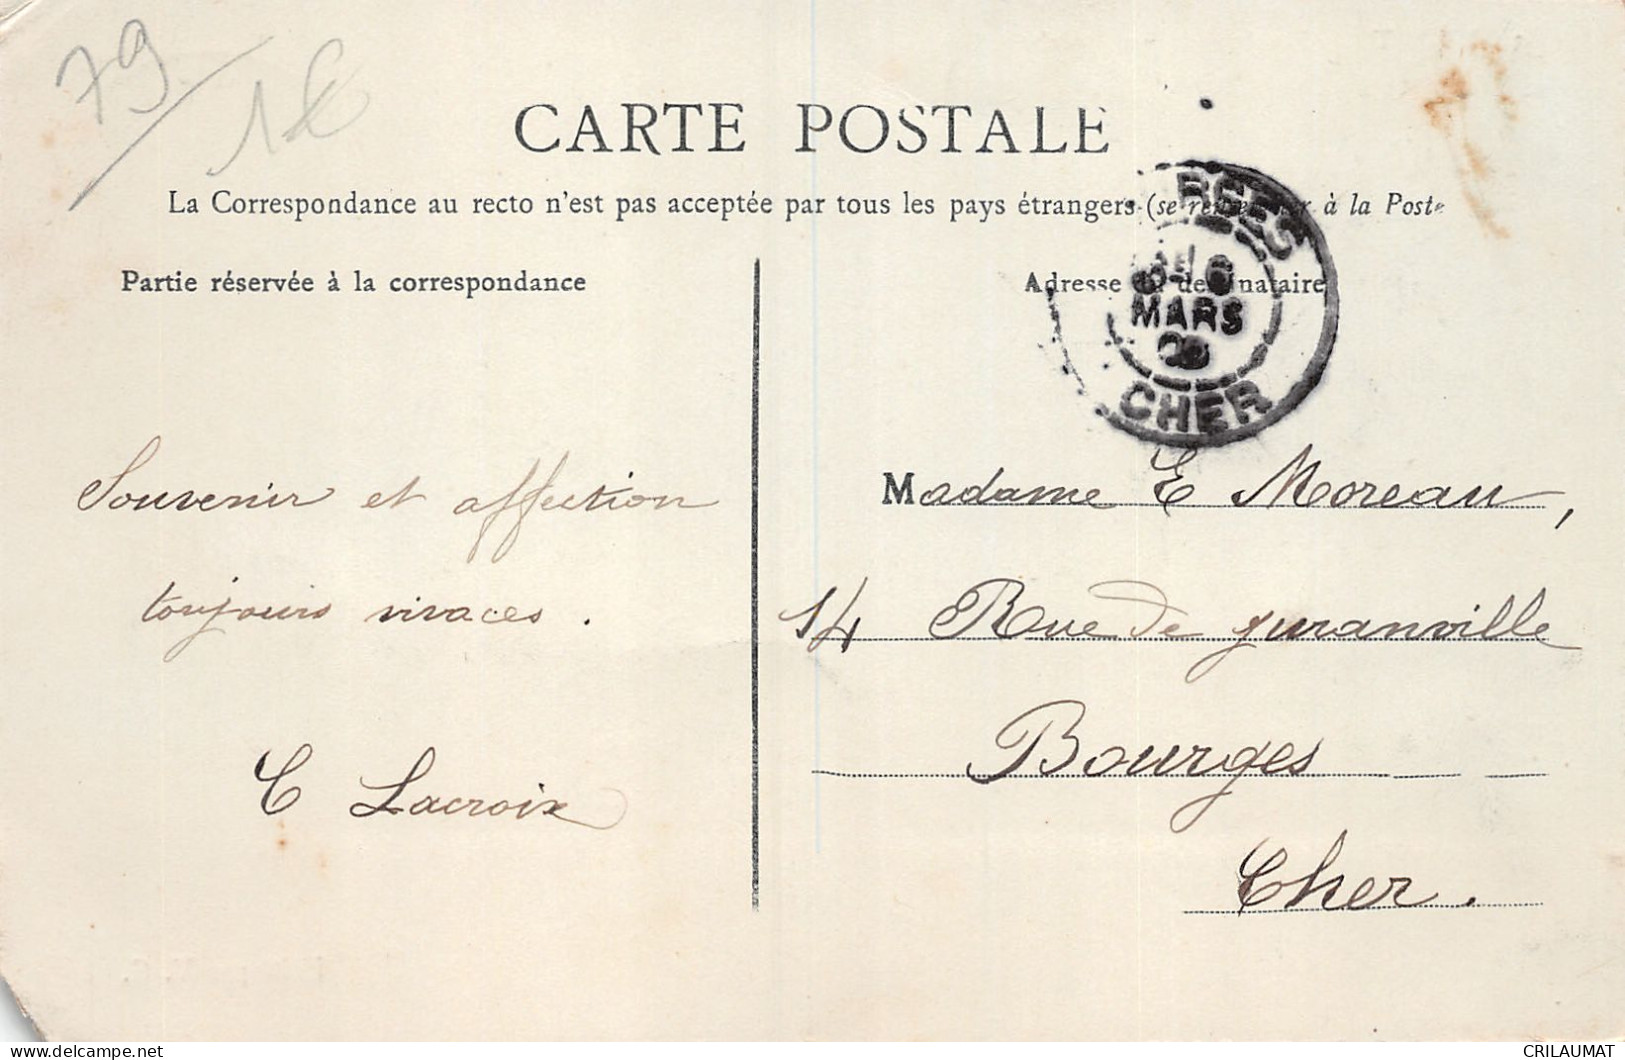 79
1€
CARTE POSTALE
La Correspondance au recto n'est pas acceptée par tous les pays étrangers (se renseigner à la Poste
Partie réservée à la correspondance
Adresse du destinataire
6
MARS
CHER
Souvenir et affection
toujours vivaces.
C Lacroix
Madame E Moreau,
14 Rue de Juranville
Bourges
Cher.
CRILAUMAT